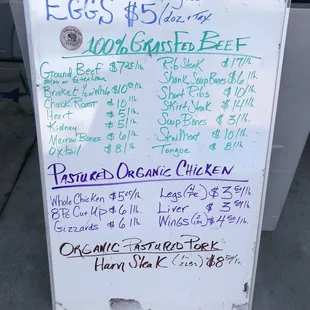 EGGS $5/doz + tax
100% GRASSFED BEEF
Ground Beef $7
Brisket $10
Chuck Roast $10 lb.
Heart $5 lb.
Kidney $5 lb.
Marrow Bones $6 lb.
Oxtail $8 lb.
Rib Steak $17/lb.
Shank Soup Bones $6 lb.
Short Ribs $10 lb.
Skirt Steak $14/lb.
Soup Bones $3/lb.
Stew Meat $10/lb.
Tongue $8/lb.
PASTURED ORGANIC CHICKEN
Whole Chicken $5 lb.
8pc Cut Up $6 lb.
Gizzards $6 lb.
Legs $3 lb.
Liver $3 lb.
Wings $4 lb.
ORGANIC PASTURED PORK
Ham Steak $8 lb.